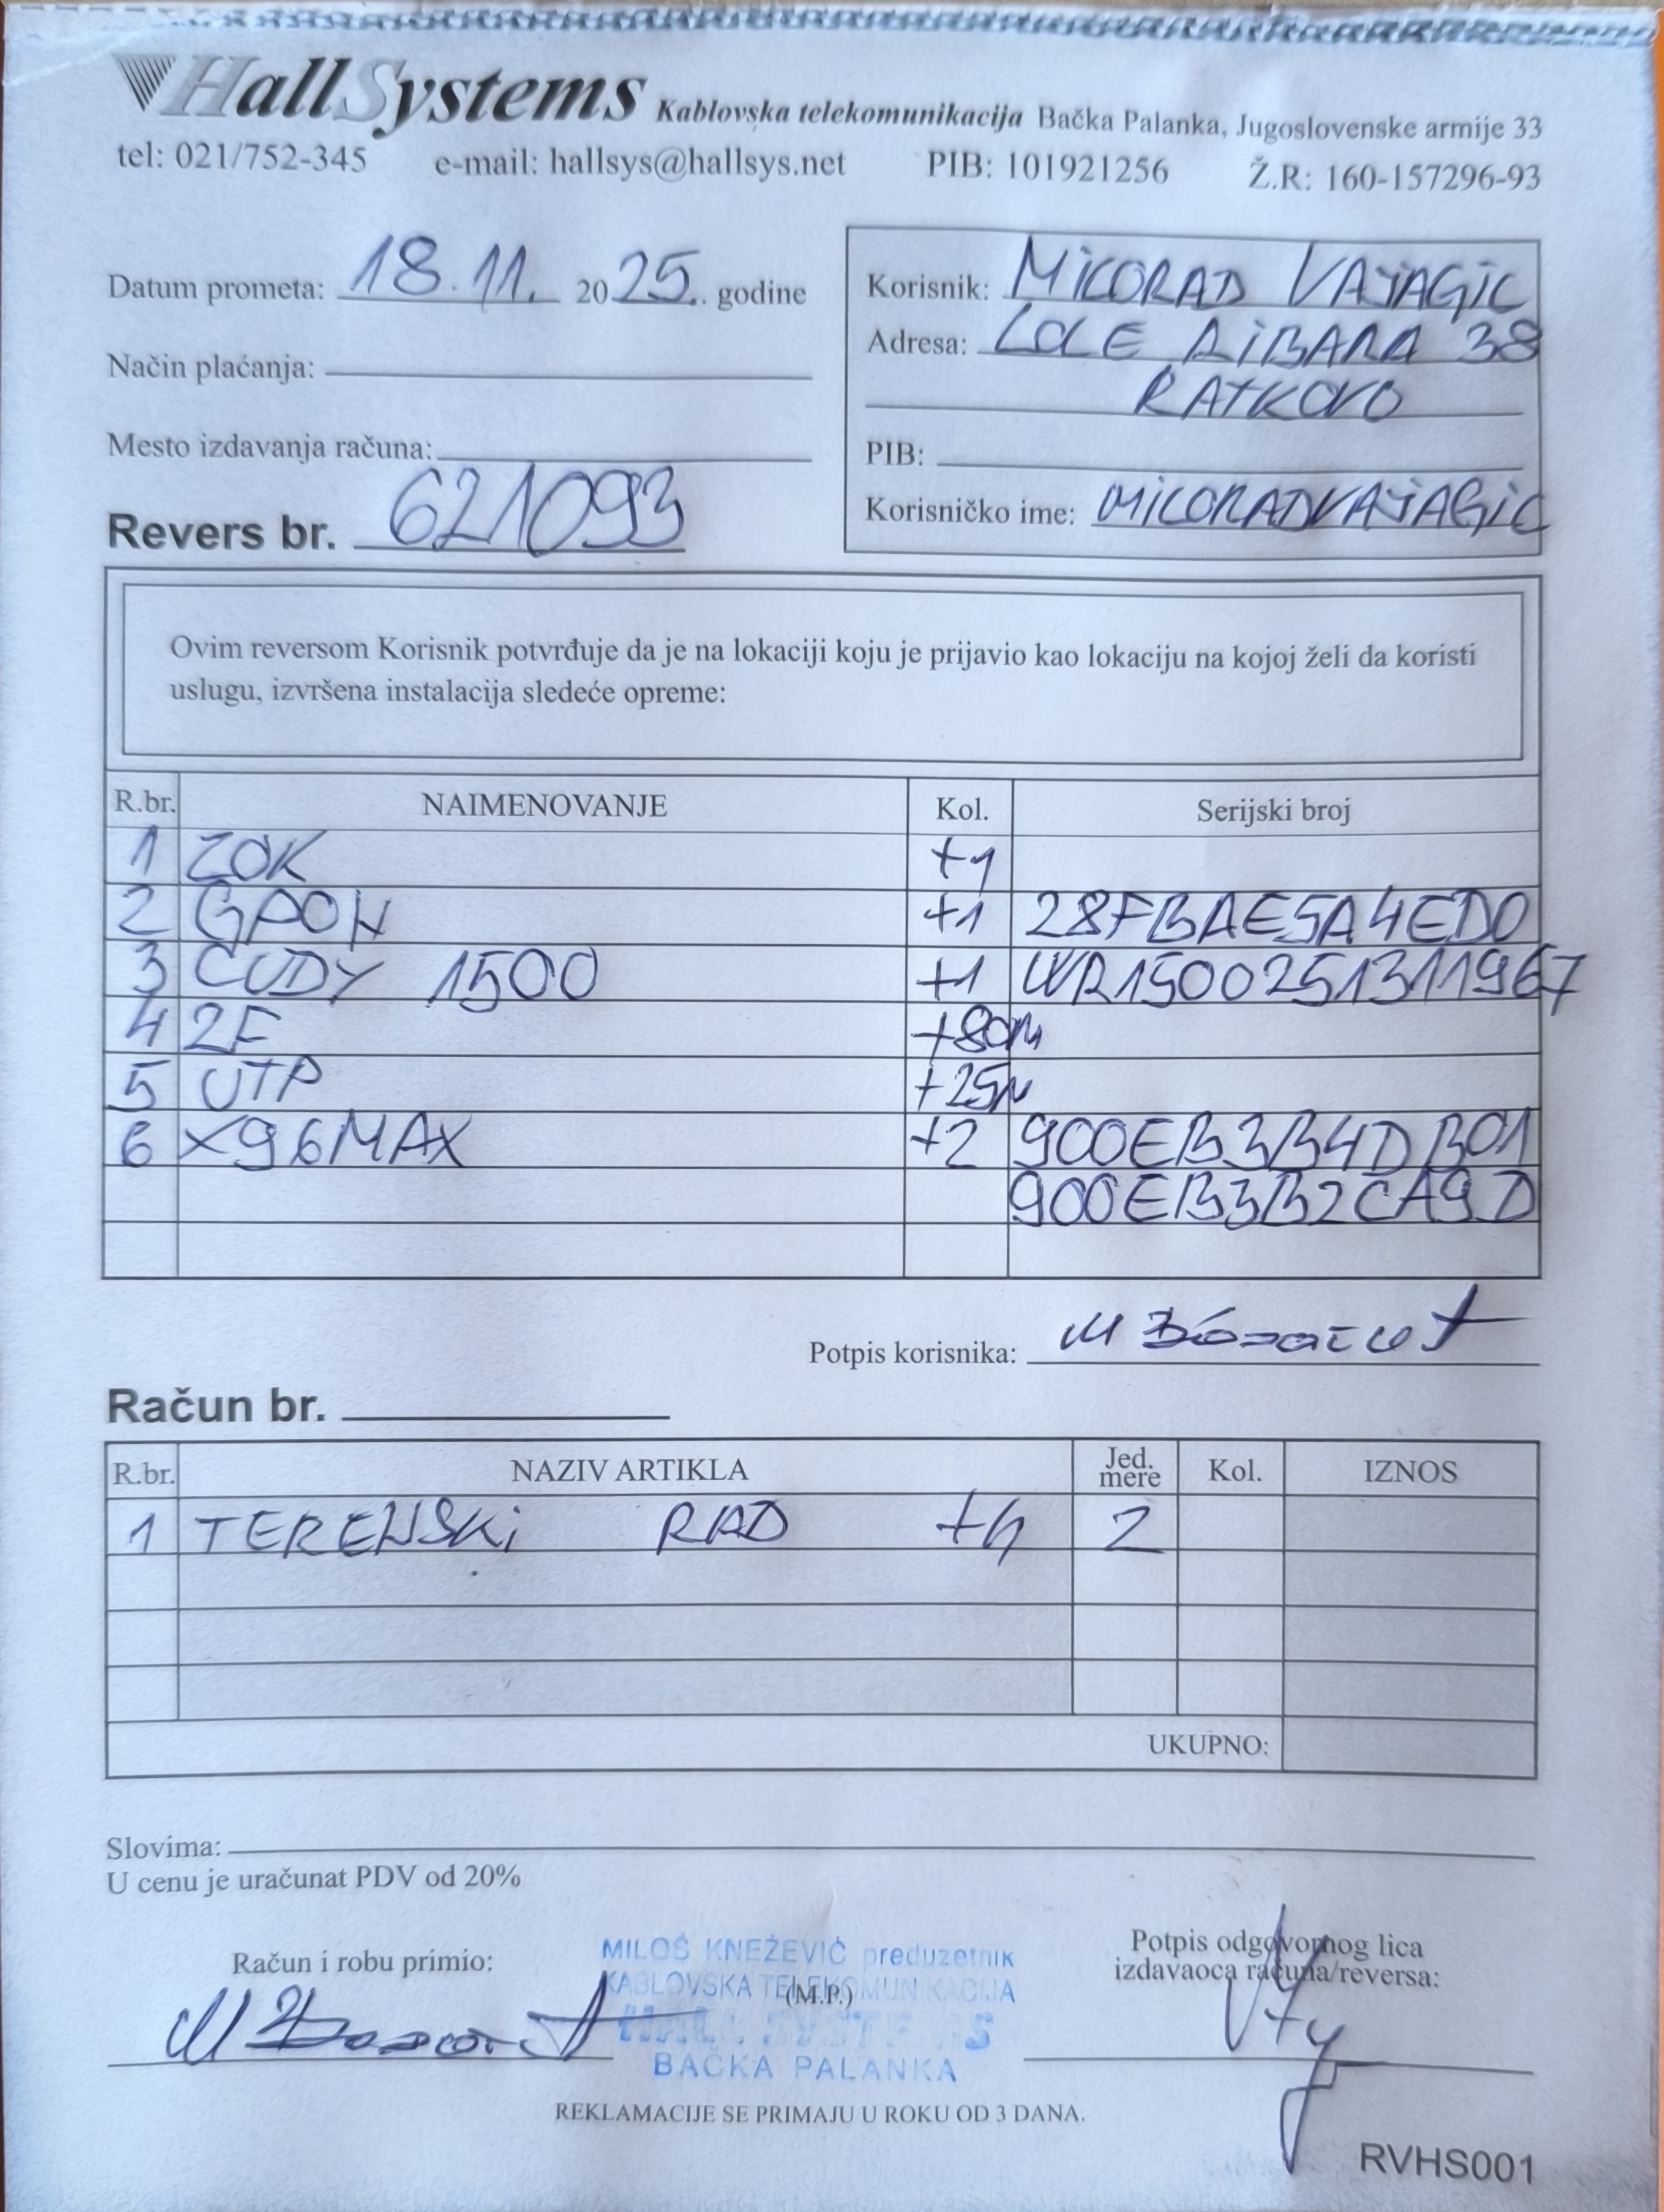 HallSystems Kablovska telekomunikacija Bačka Palanka, Jugoslovenske armije 33
tel: 021/752-345 e-mail: hallsys@hallsys.net PIB: 101921256 Ž.R: 160-157296-93
Datum prometa: 18.11. 2025. godine
Način plaćanja:
Mesto izdavanja računa:
Revers br. 621093
Korisnik: MiLORAD VAJAGiC
Adresa: LOLE RiBARA 38
RATKOVO
PIB:
Korisničko ime: MiLORADVAJAGiC
Ovim reversom Korisnik potvrđuje da je na lokaciji koju je prijavio kao lokaciju na kojoj želi da koristi
uslugu, izvršena instalacija sledeće opreme:
R.br. NAIMENOVANJE Kol. Serijski broj
1 ZOK +1
2 GPON +1 28FBAE5A4ED0
3 CUDY 1500 +1 WR1500251311967
4 2F +80m
5 UTP +25m
6 X96MAX +2 900EB3B4DB01
900EB3B2CA9D
Potpis korisnika:
Račun br.
R.br. NAZIV ARTIKLA Jed. mere Kol. IZNOS
1 TERENSKi RAD +h 2
UKUPNO:
Slovima:
U cenu je uračunat PDV od 20%
Račun i robu primio:
MILOŠ KNEŽEVIĆ preduzetnik
KABLOVSKA TELEKOMUNIKACIJA
(M.P.)
HALL SYSTEMS
BAČKA PALANKA
Potpis odgovornog lica
izdavaoca računa/reversa:
REKLAMACIJE SE PRIMAJU U ROKU OD 3 DANA.
RVHS001